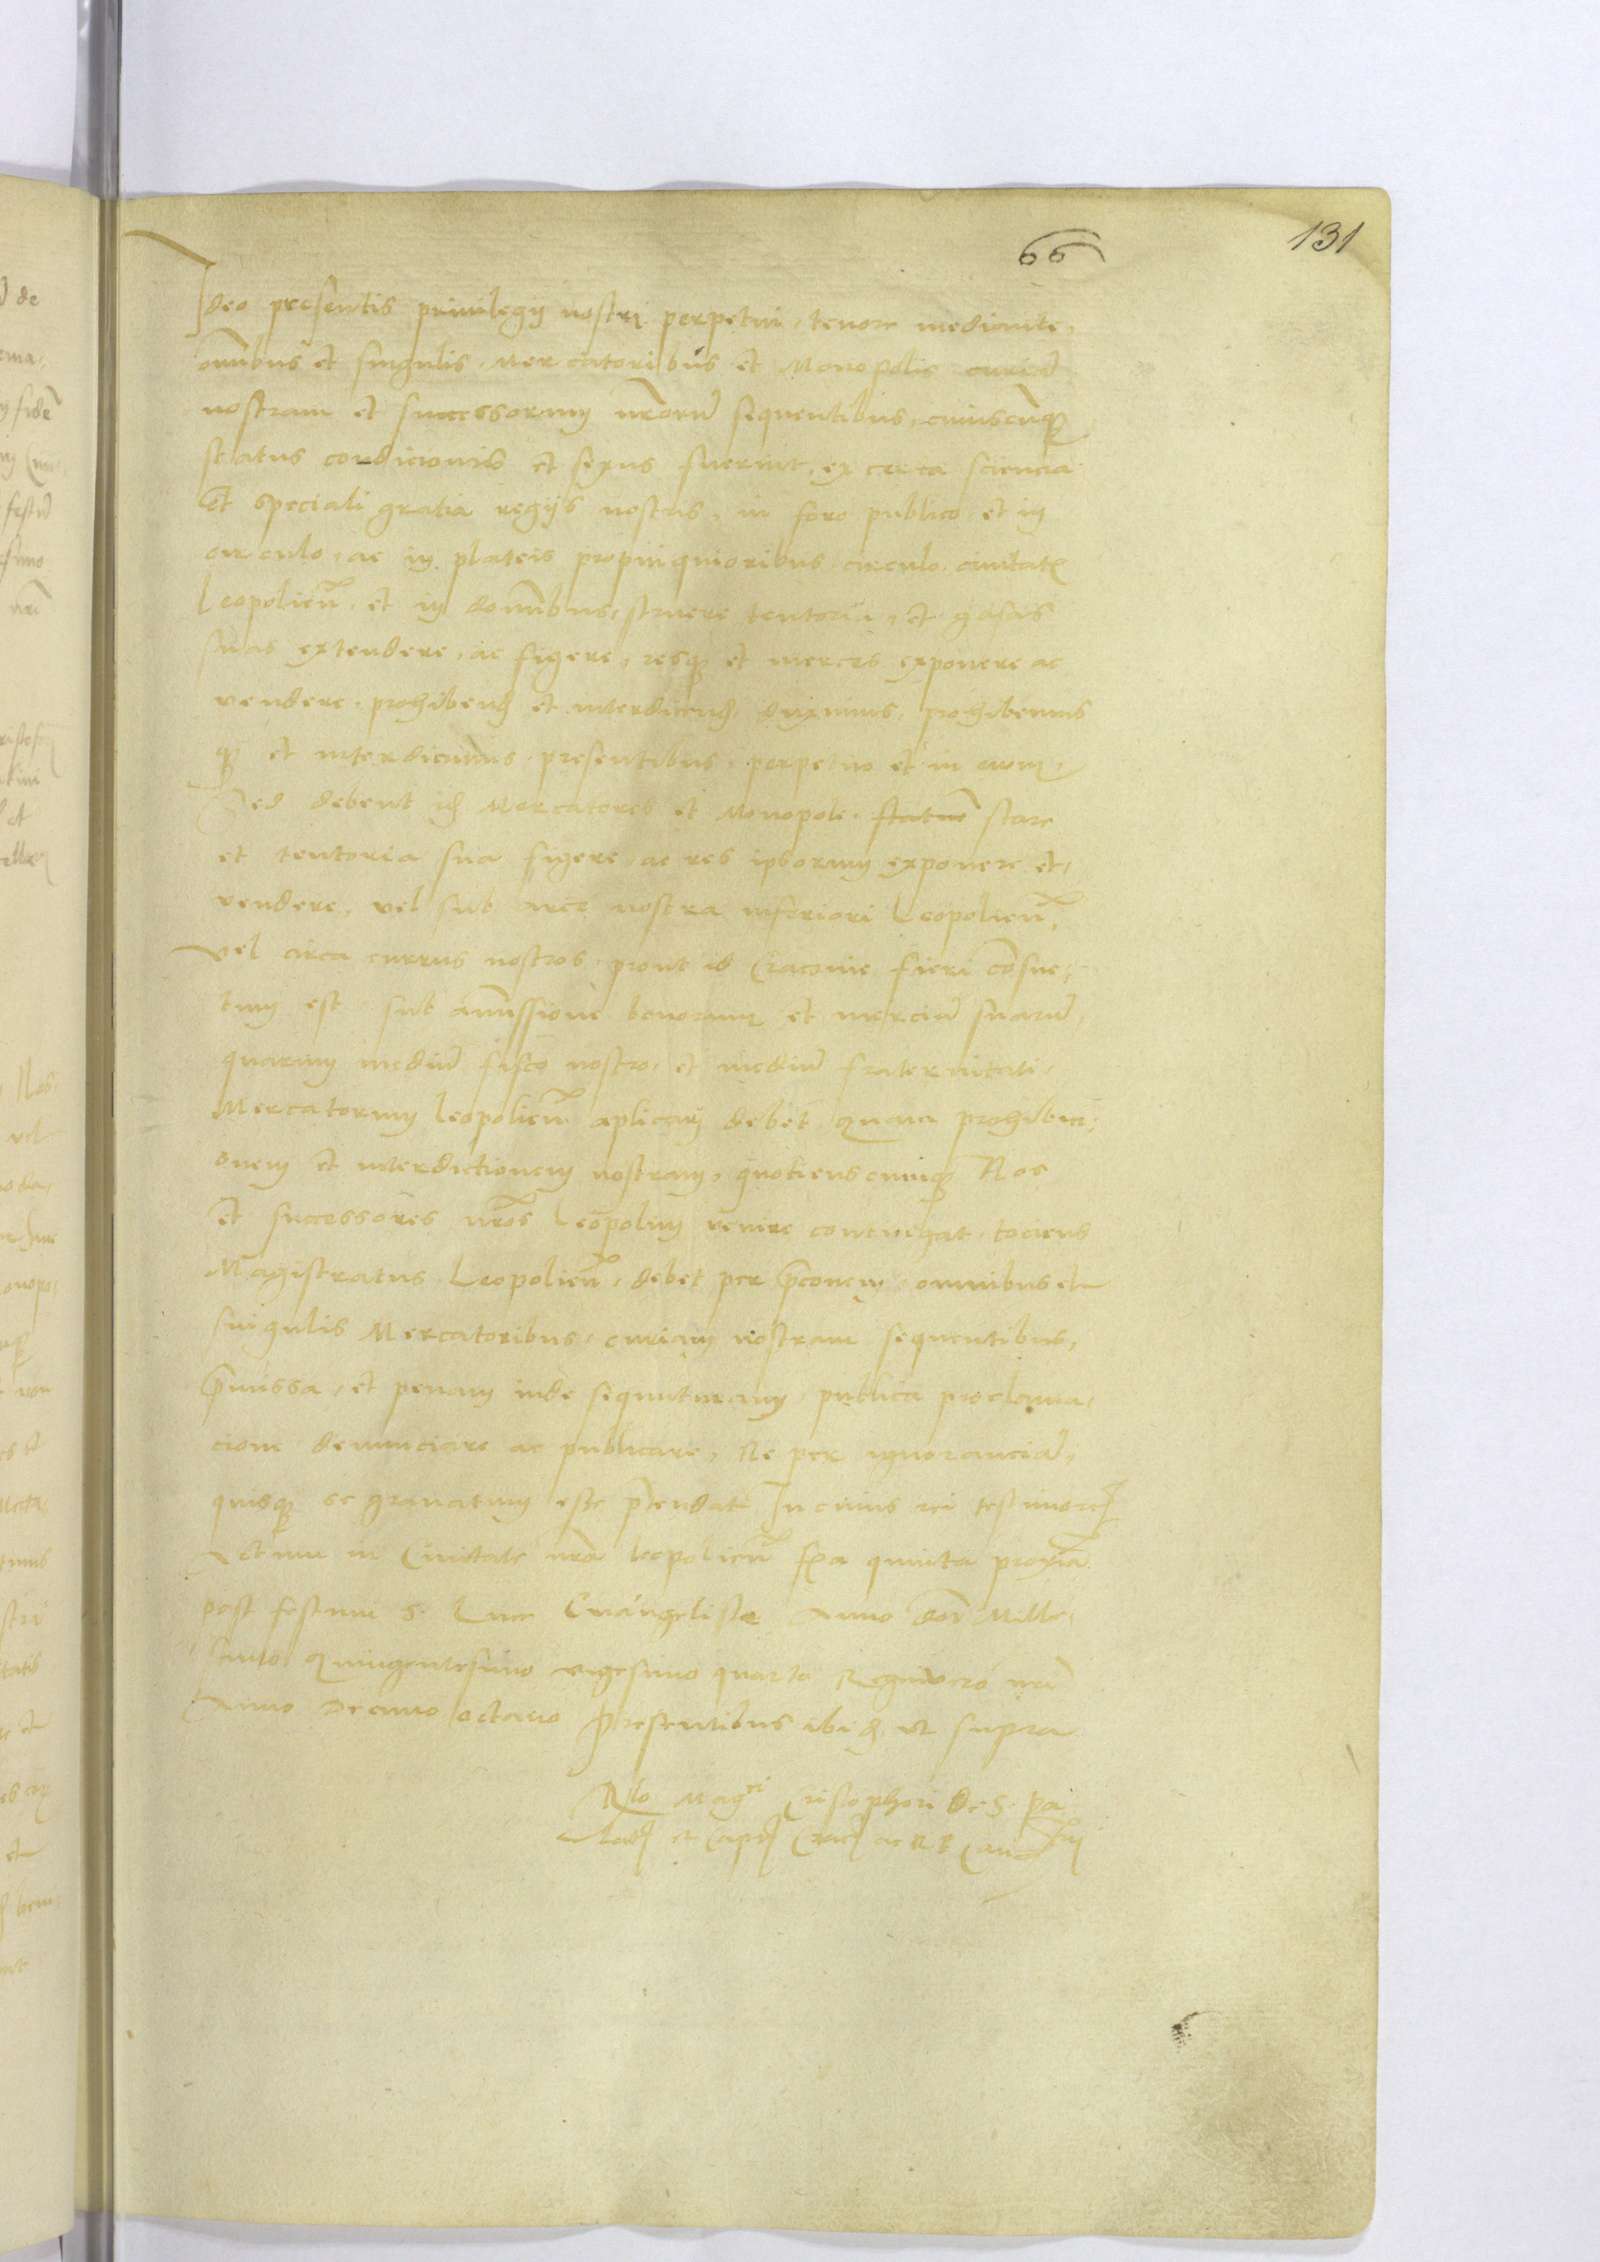 66
131
Ideo presentis privilegy nostri perpetui, tenore mediante,
omnibus et singulis, Mercatoribus et Monopolis curiam
nostram et successorum nrorum sequentibus, cuiuscunq
status condicionis et sexus fuerint, ex certa sciencia
Et speciali gratia regijs nostris, in foro publico et in
circulo, ac in plateis propinquioribus circulo civitatis
Leopolien et in domibus, struere tentoria, et gasas
suas extendere, ac figere, resq et merces exponere ac
vendere, prohibend et interdicend duximus, prohibemus
q et interdicimus presentibus, perpetuo et in evum,
Sed debent ijd Mercatores et Monopole, statue stare
et tentoria sua figere, ac res ipsorum exponere et,
vendere, vel sub arce nostra inferiori Leopolien,
vel circa currus nostros, prout id Cracovie fieri consue,
tum est sub amissione bonorum et mercium suarum,
quarum medium fisco nostro, et medium fraternitati,
Mercatorum Leopolien aplicari debet, quam prohibici,
onem et interdictionem nostram, quotienscunq Nos
et successores nros Leopolim venire contingat, tociens
Magistratus Leopolien, debet per preconem, omnibus et
singulis Mercatoribus, curiam nostram sequentibus,
premissa, et penam inde sequuturam, publica proclama,
cione denunciare ac publicare, Ne per ignoranciam,
quisq se gravatum esse pretendat In cuius rei testimon
Actum in Civitate nra Leopolien fra quinta proxia
post festum S. Luce Evangeliste Anno Dom Mille,
simo quingentesimo vigesimo quarto Regni vero nri
Anno Decimo octavo Presentibus ibid, ut supra
Rlo Magci Cristophori de S. pa
latd et Capi Crac ac R P Cancrij